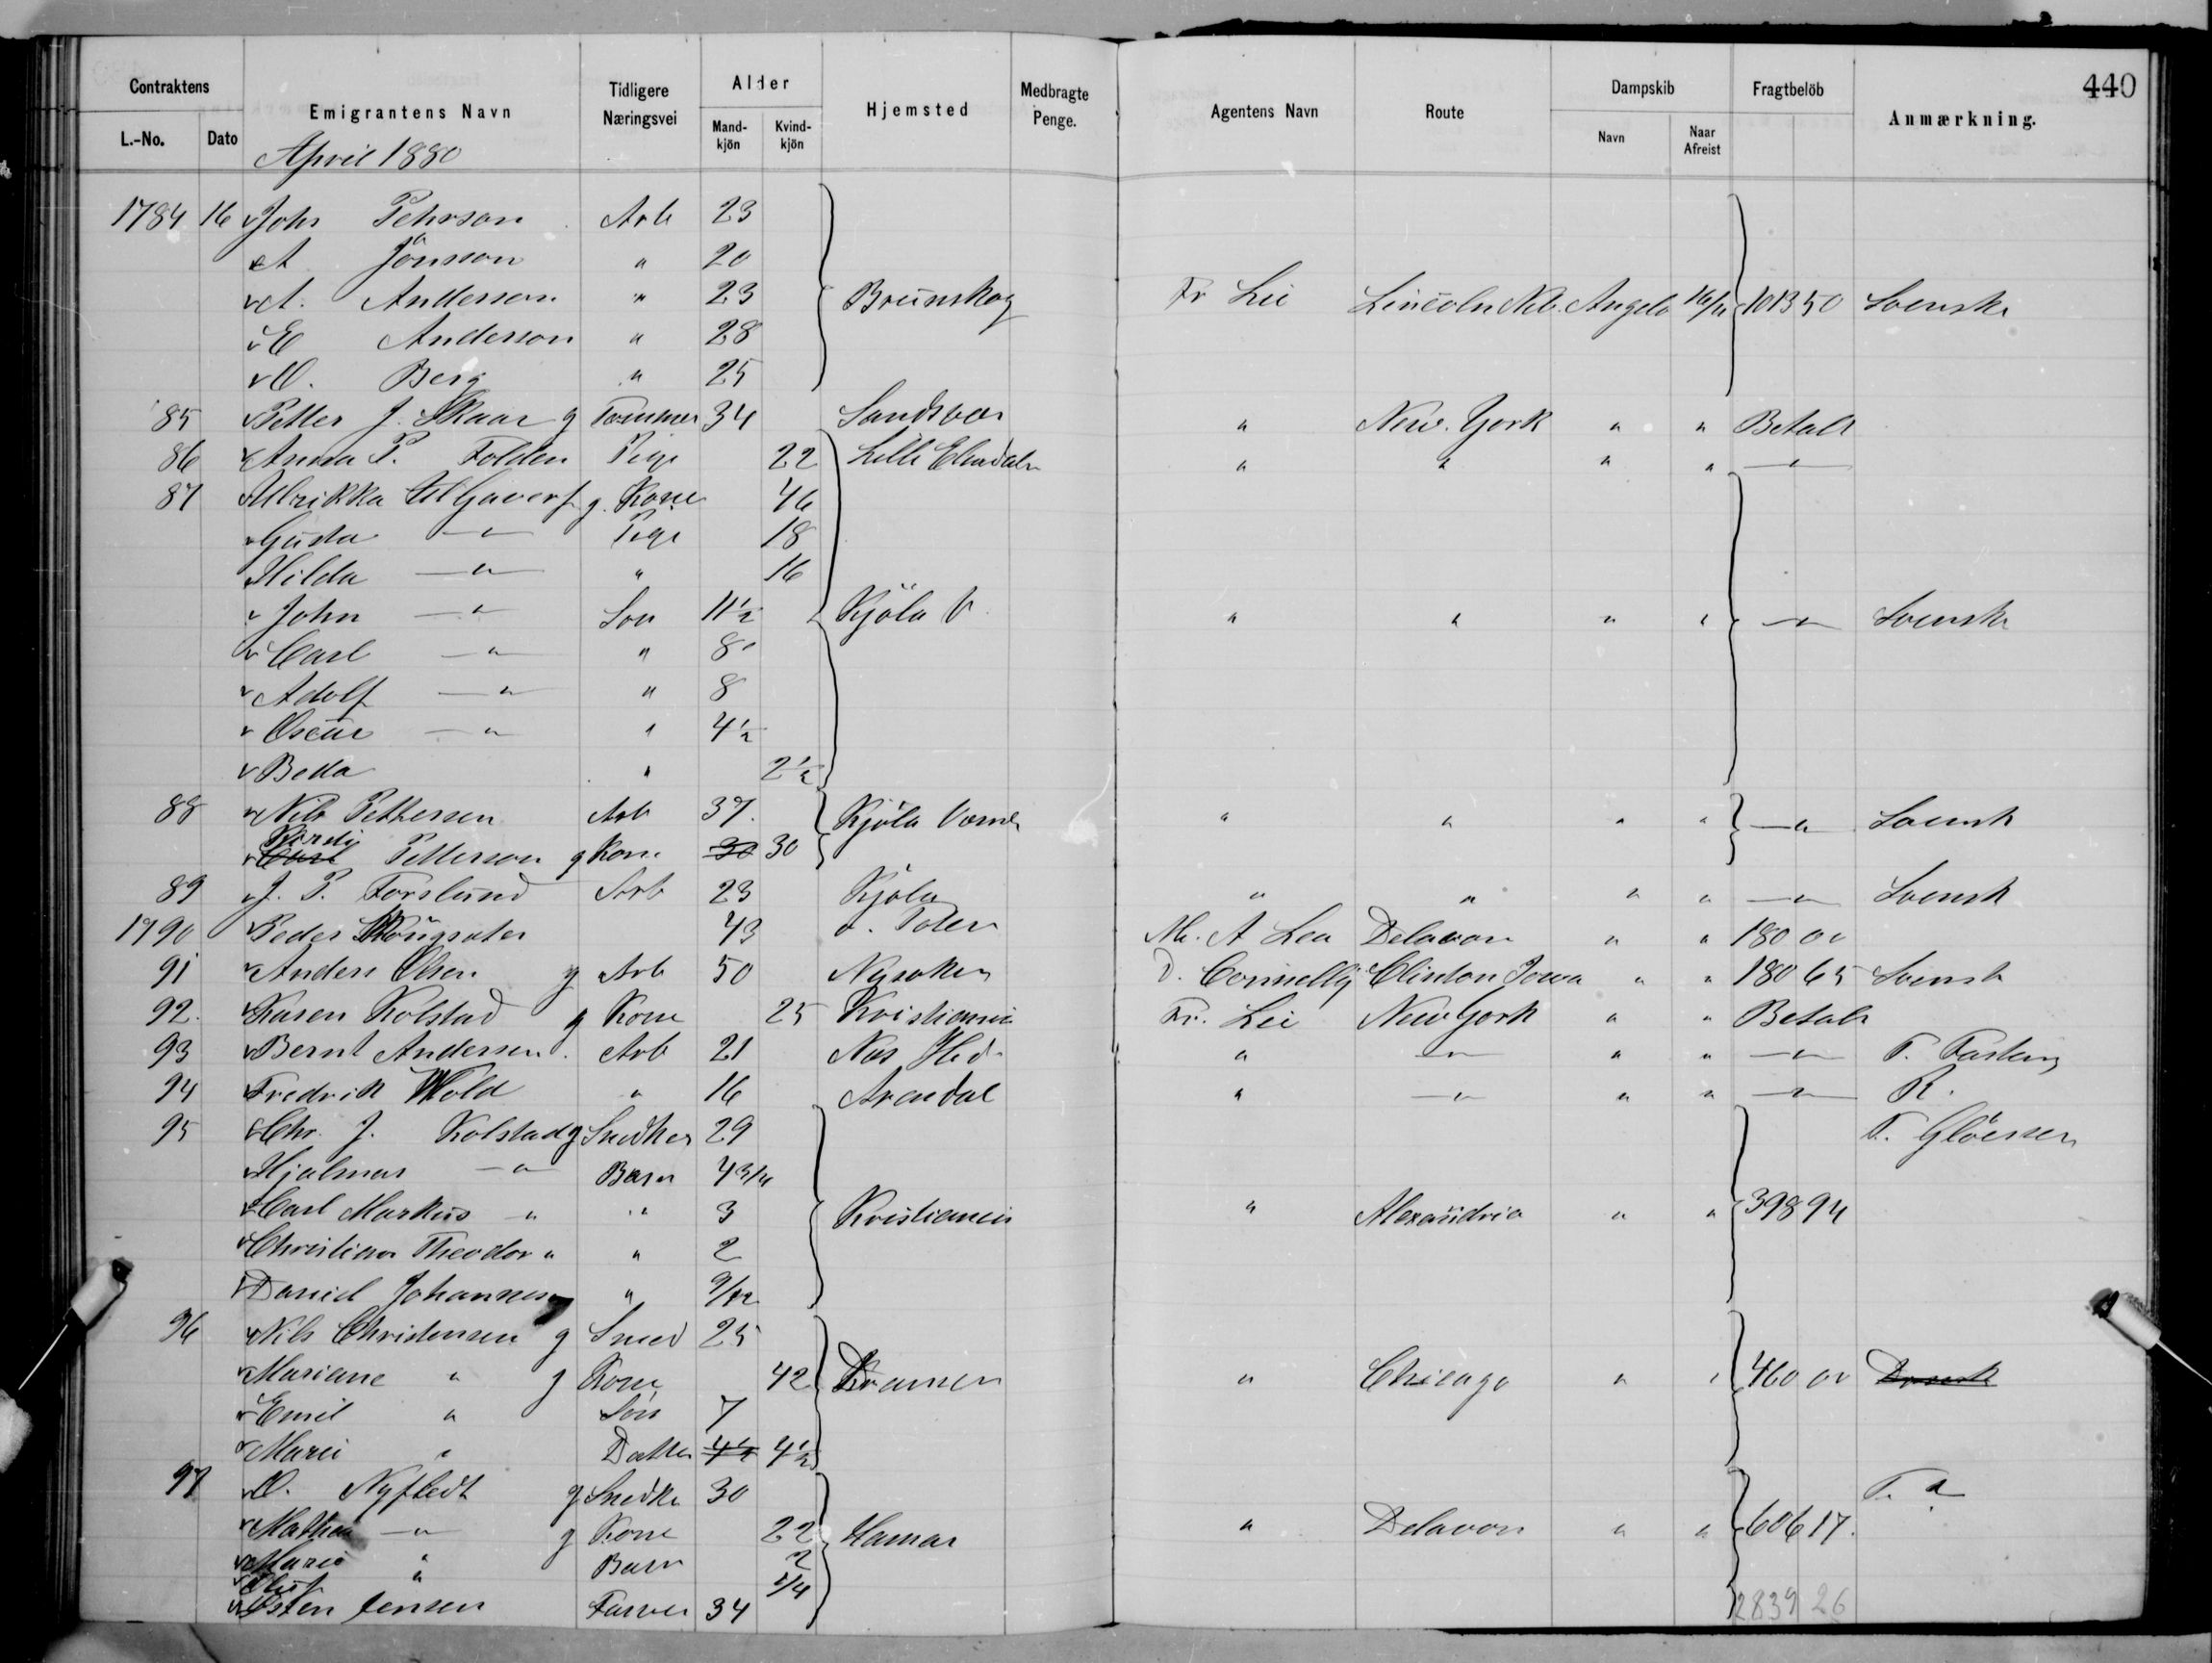 440
Contraktens Emigrantens Navn Tidligere Næringsvei Alder Hjemsted Medbragte Penge. Agentens Navn Route Dampskib Fragtbelöb Anmærkning.
L.-No. Dato Mand-kjön Kvind-kjön Navn Naar Afreist
April 1880
1784 16 Johs Pehrson Arb 23
A Jönsson " 20
A. Anderson " 23 Brunskog Fr Lie Lincoln Neb. Angelo 16/4 1013 50 Svenske
E Anderson " 28
O. Berg " 25
85 Petter J. Skaar g Tømmer 34 Sandsvær " New. York " " Betalt
86 Anna P. Folden Pige 22 Lille Elvedalen " " " " — " —
87 Ulrikka g. Kone 46
Gusta — " — Pige 18
Hilda — " — " 16
John — " — Søn 11½ Kjöla V. " " " " — " — Svenske
Carl — " — " 8
Adolf — " — " 8
Oscar — " — " 4½
Beda " 2½
88 Nils Pettersen Arb 37. Kjöla " " " " — " — Svensk
Petterson g Kone 30 30
89 J. P. Forslund Arb 23 Kjöla " " " " — " — Svensk
1790 Peder 43 v. Toten M. A Lea Delavan " " 180 00
91 Anders Olsen g Arb 50 Nysoken D. Connelly Clinton Iowa " " 180 65 Svensk
92. Karen Kolstad g Kone 25 Kristiania Fr. Lie New York " " Betalt
93 Bernt Andersen. Arb 21 Næs Hed. " — " — " " — " — T.
94 Fredrik Wold " 16 Arendal " — " — " " — " — R.
95 Chr. J. Kolstad g Snedker 29 T. Glöersen
Hjalmar — " — Barn 4 3/4
Carl Markus " " 3 Kristiania " Alexandria " " 398 94
Christian Theodor " " 2
Daniel Johannes " 9/12
96 Nils Christensen g Smed 25
Mariane " g Kone 42 Dramen " Chicago " " 460 00 Dansk
Emil " Søn 7
Marie " Datter 4½ 4½
97 O. Nyfledt g Snedker 30 T. "
Mathea — " — g Kone 22 Hamar " Delavan " " 606 17.
Marie " Barn 2
Oluf " 1/4
Østen Jensen Farver 34
2839 26